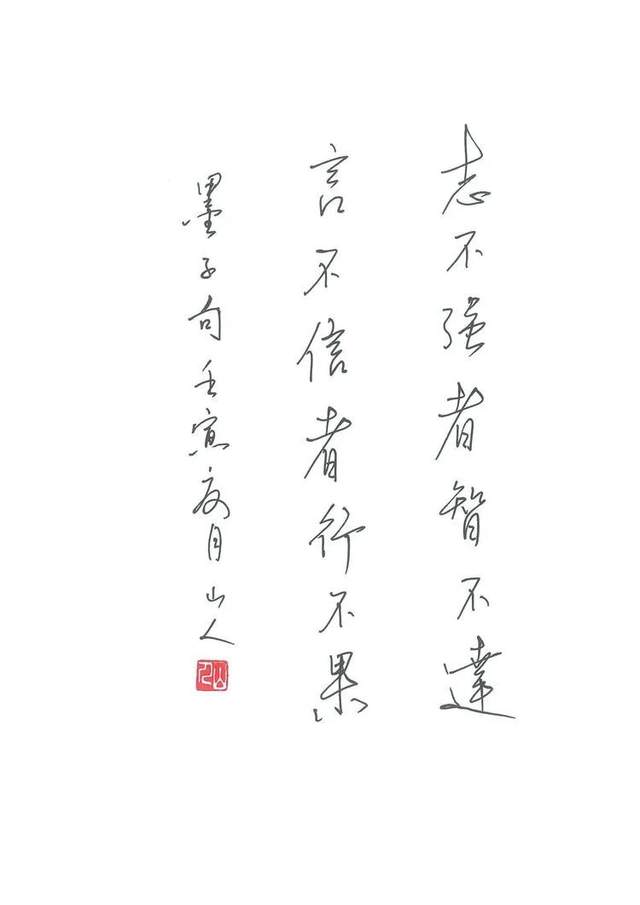 志不强者智不達
言不信者行不果
墨子句壬寅亥月山人
山人